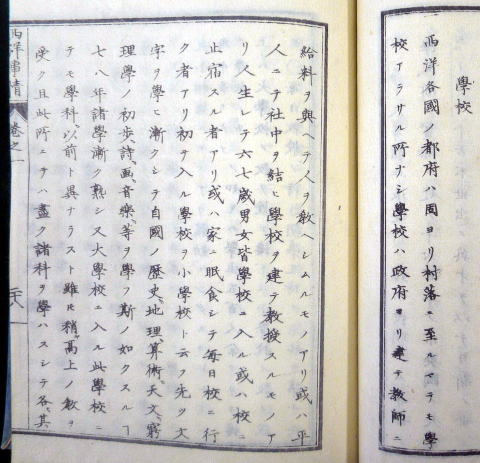 學校
西洋各國ノ都府ハ固ヨリ村落ニ至ルマテモ學
校アラサル所ナシ學校ハ政府ヨリ建テ教師ニ
給料ヲ與ヘテ人ヲ教ヘシムルモノアリ或ハ平
人ニテ社中ヲ結ヒ學校ヲ建テ教授スルモノア
リ人生レテ六七歳男女皆學校ニ入ル或ハ校ニ
止宿スル者アリ或ハ家ニ眠食シテ毎日校ニ行
ク者アリ初テ入ル學校ヲ小學校ト云フ先ツ文
字ヲ學ヒ漸クシテ自國ノ歴史、地理、算術、天文、窮
理學ノ初歩、詩、画、音樂等ヲ學フ斯ノ如クスルヿ
七八年諸學漸ク熟シ又大學校ニ入ル此學校ニ
テモ學科ハ以前ト異ナラスト雖モ稍高上ノ教ヲ
受ク且此所ニテハ盡ク諸科ヲ學ハスシテ各其
西洋事情
卷之一
二十八